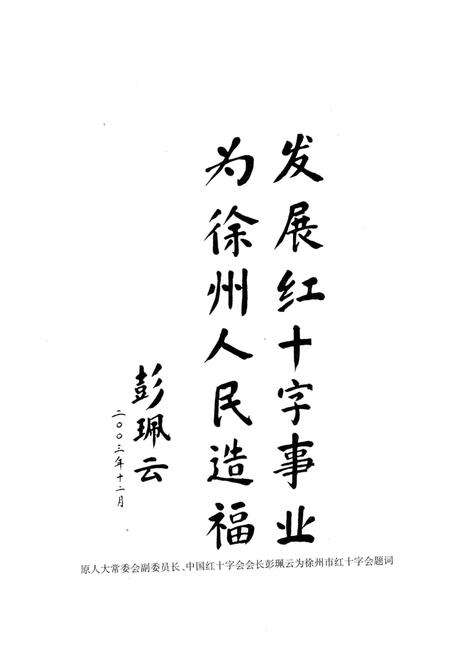 发展红十字事业
为徐州人民造福
彭珮云
二〇〇三年十二月
原人大常委会副委员长、中国红十字会会长彭珮云为徐州市红十字会题词